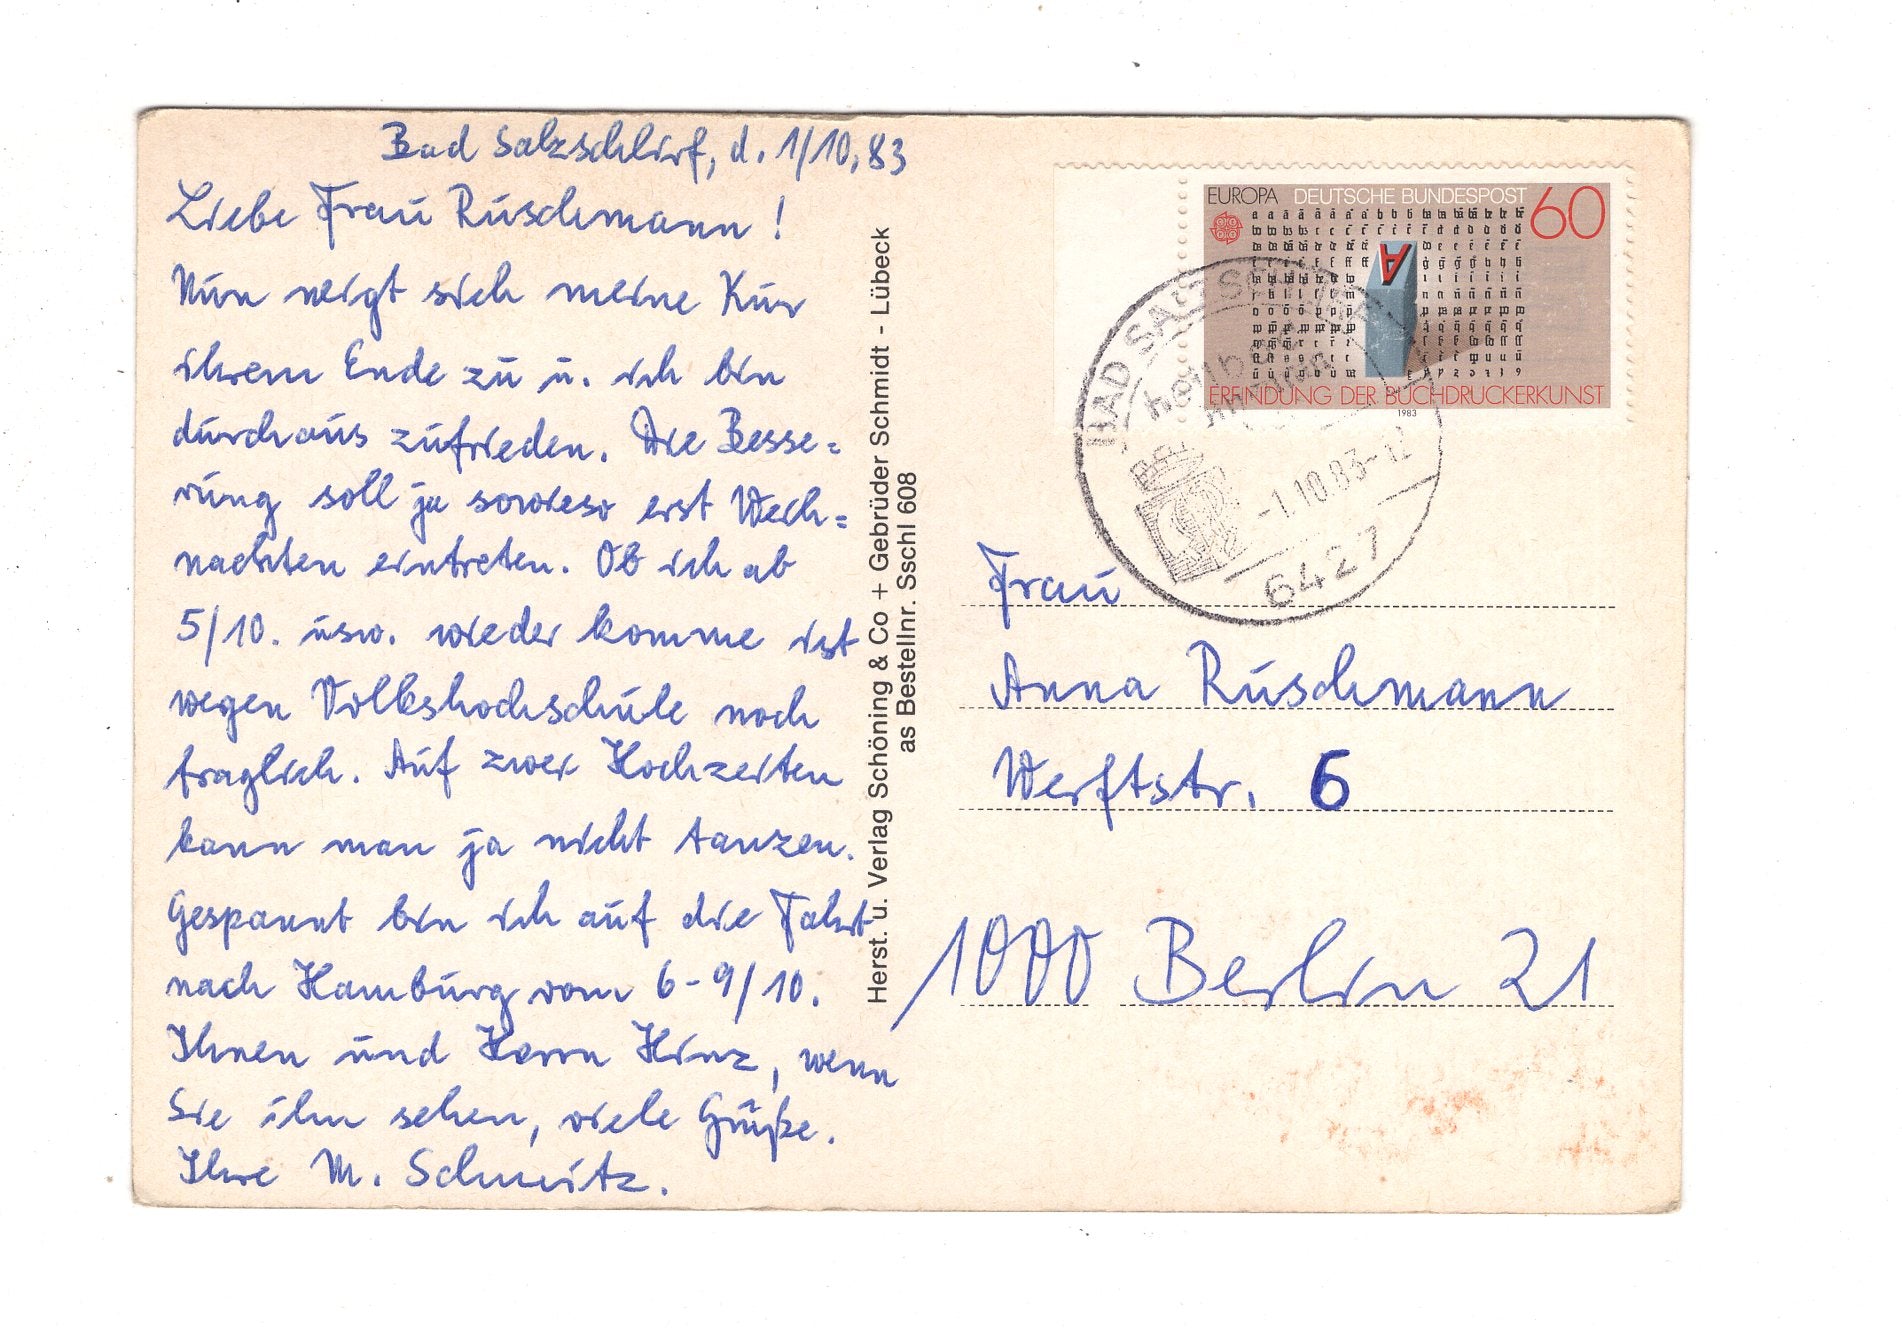 Bad Salzschlirf, d. 1/10.83
Liebe Frau Rüschmann!
Nun neigt sich meine Kur
ihrem Ende zu u. ich bin
durchaus zufrieden. Die Besse=
rung soll ja sowieso erst Weih=
nachten eintreten. Ob ich ab
5/10. usw. wieder komme ist
wegen Volkshochschule noch
fraglich. Auf zwei Hochzeiten
kann man ja nicht tanzen.
Gespannt bin ich auf die Fahrt
nach Hamburg vom 6-9/10.
Ihnen und Herrn Hinz, wenn
Sie ihn sehen, viele Grüße.
Ihre M. Schmitz.
Herst. u. Verlag Schöning & Co + Gebrüder Schmidt - Lübeck
as Bestellnr. Sschl 608
EUROPA DEUTSCHE BUNDESPOST 60
A
ERFINDUNG DER BUCHDRUCKERKUNST
1983
BAD SALZSCHLIRF
-1.10.83-12
6427
Frau
Anna Rüschmann
Werftstr. 6
1000 Berlin 21